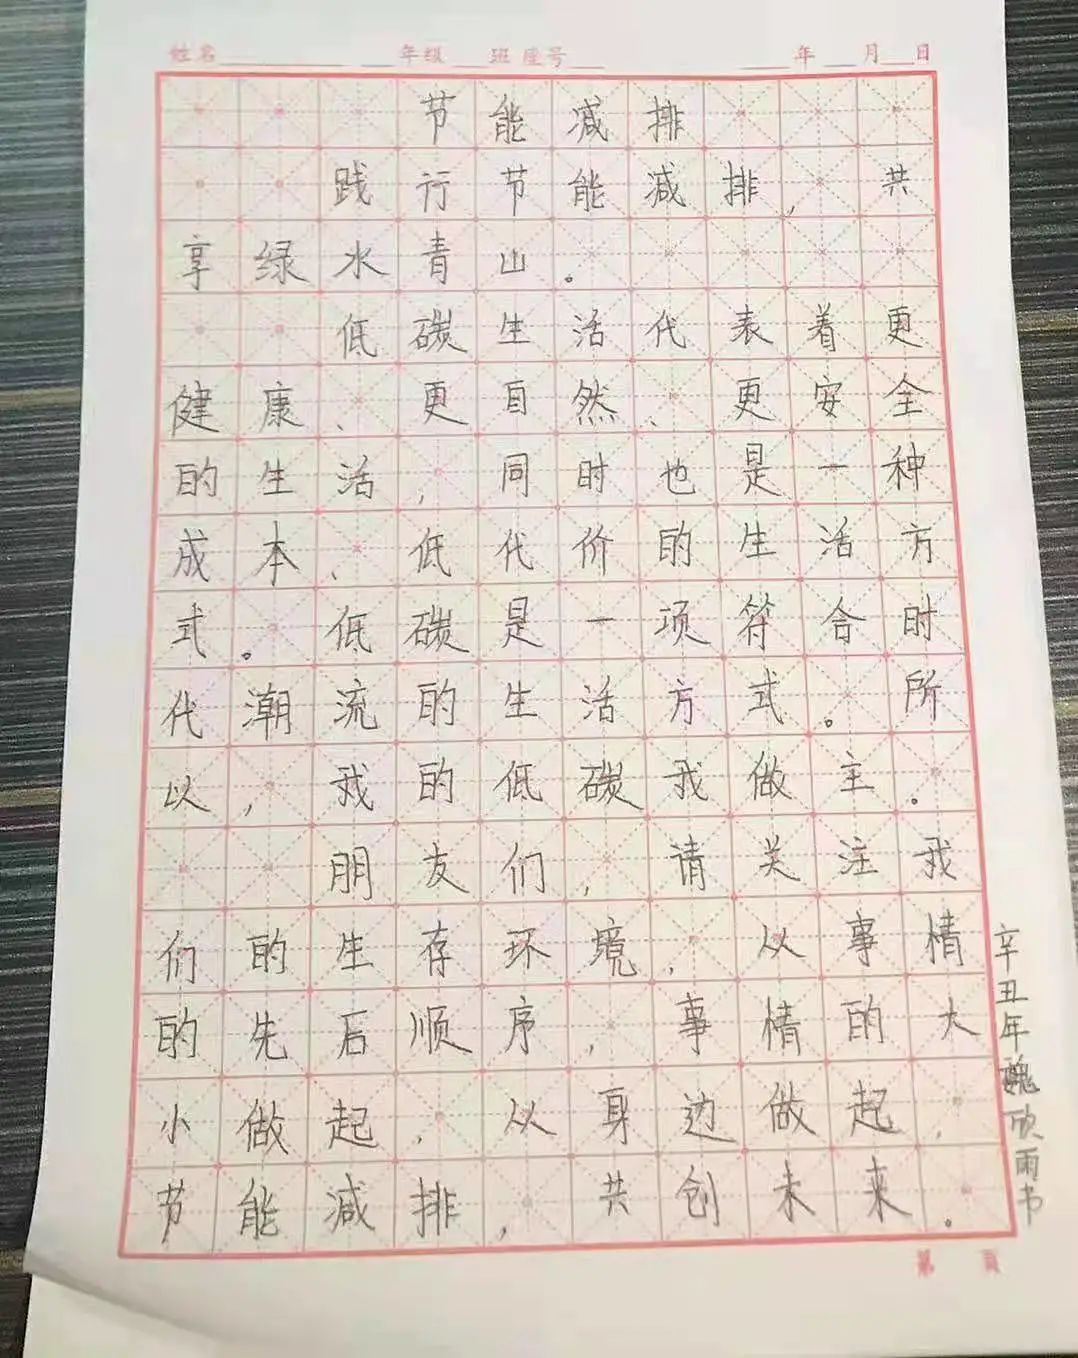 姓名 年级 班 座号 年 月 日
节能减排
践行节能减排，共
享绿水青山。
低碳生活代表着更
健康、更自然、更安全
的生活，同时也是一种
成本、低代价的生活方
式。低碳是一项符合时
代潮流的生活方式。所
以，我的低碳我做主。
朋友们，请关注我
们的生存环境，从事情
的先后顺序，事情的大
小做起，从身边做起，
节能减排，共创未来。
辛丑年魏欣雨书
第 页